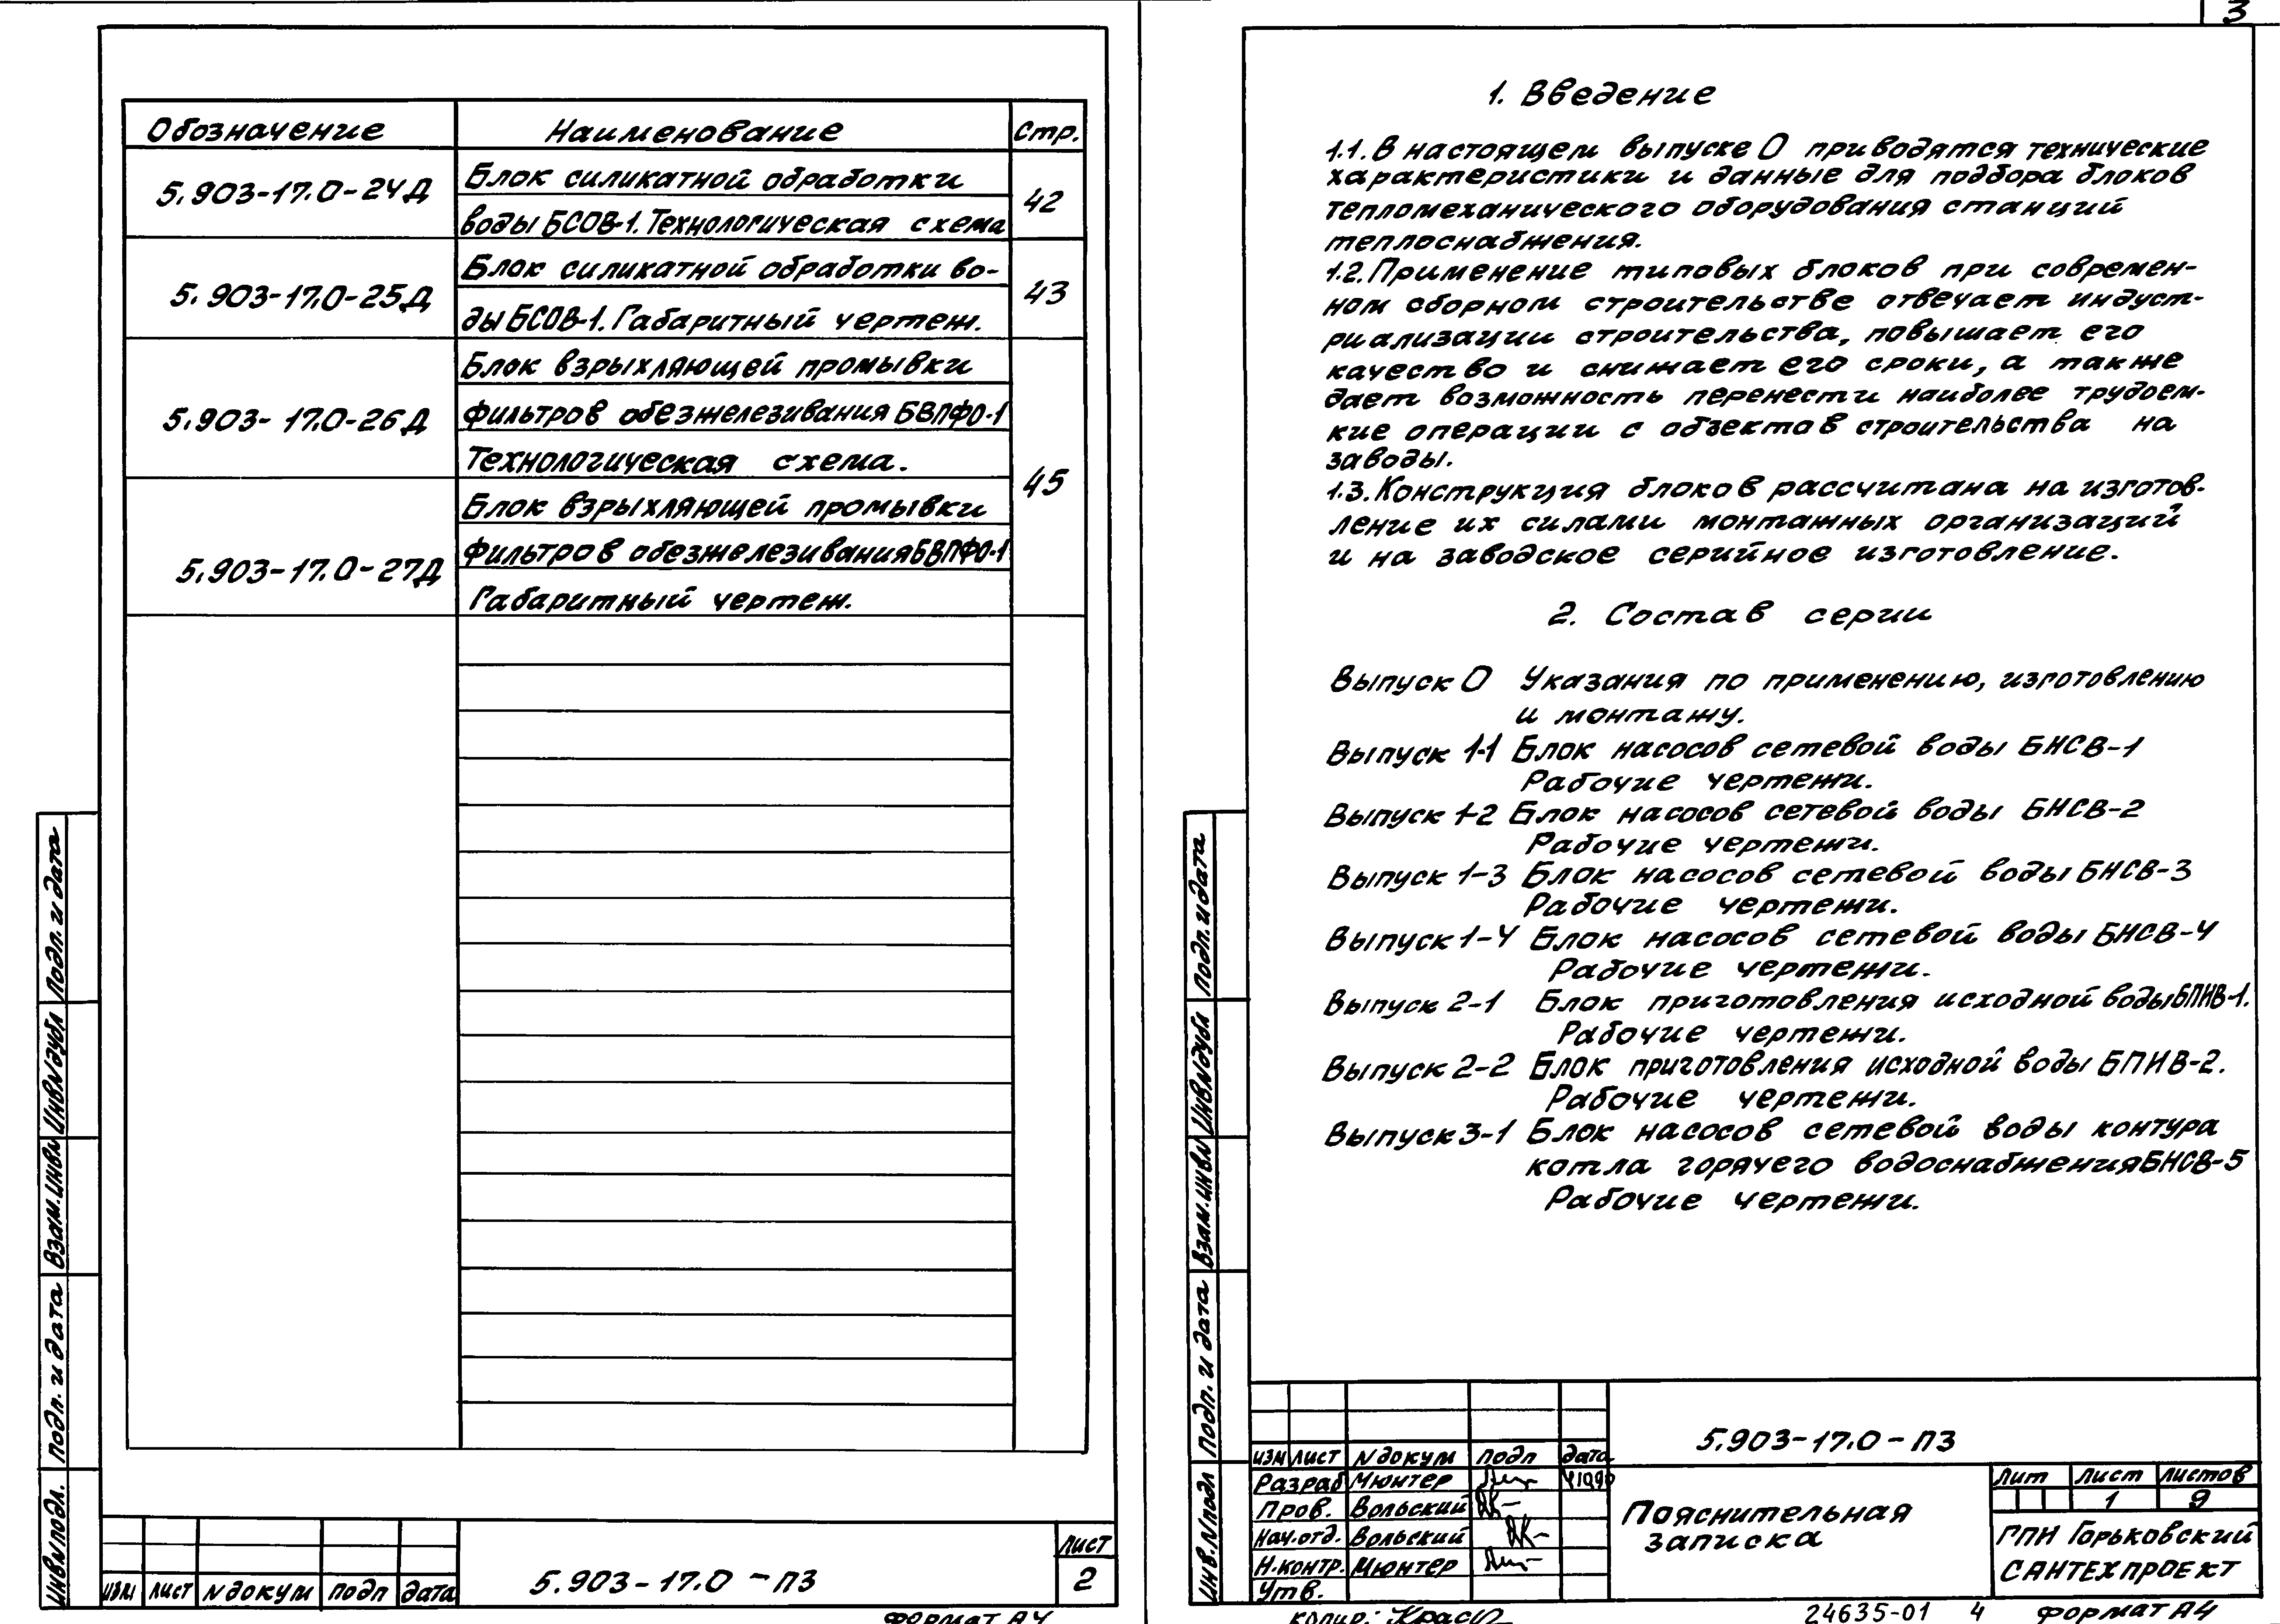 Обозначение Наименование Стр.
5.903-17.0-24Д Блок силикатной обработки 42
воды БСОВ-1. Технологическая схема
5.903-17.0-25Д Блок силикатной обработки во- 43
ды БСОВ-1. Габаритный чертеж.
Блок взрыхляющей промывки
5.903-17.0-26Д фильтров обезжелезивания БВПФО-1
Технологическая схема.
45
Блок взрыхляющей промывки
5.903-17.0-27Д фильтров обезжелезивания БВПФО-1
Габаритный чертеж.
Инв.N подл. Подп. и дата Взам.инв.N Инв.N дубл Подп. и дата
изм лист N докум подп дата
5.903-17.0-ПЗ
лист
2
формат А4
3
1. Введение
1.1. В настоящем выпуске 0 приводятся технические
характеристики и данные для подбора блоков
тепломеханического оборудования станций
теплоснабжения.
1.2. Применение типовых блоков при современ-
ном сборном строительстве отвечает индуст-
риализации строительства, повышает его
качество и снижает его сроки, а также
дает возможность перенести наиболее трудоем-
кие операции с объектов строительства на
заводы.
1.3. Конструкция блоков рассчитана на изготов-
ление их силами монтажных организаций
и на заводское серийное изготовление.
2. Состав серии
Выпуск 0 Указания по применению, изготовлению
и монтажу.
Выпуск 1-1 Блок насосов сетевой воды БНСВ-1
Рабочие чертежи.
Выпуск 1-2 Блок насосов сетевой воды БНСВ-2
Рабочие чертежи.
Выпуск 1-3 Блок насосов сетевой воды БНСВ-3
Рабочие чертежи.
Выпуск 1-4 Блок насосов сетевой воды БНСВ-4
Рабочие чертежи.
Выпуск 2-1 Блок приготовления исходной воды БПИВ-1.
Рабочие чертежи.
Выпуск 2-2 Блок приготовления исходной воды БПИВ-2.
Рабочие чертежи.
Выпуск 3-1 Блок насосов сетевой воды контура
котла горячего водоснабжения БНСВ-5
Рабочие чертежи.
Инв.N подл Подп. и дата Взам.инв.N Инв.N дубл Подп. и дата
5.903-17.0-ПЗ
изм лист N докум подп дата
Разраб Мюнтер
Пров. Вольский
Нач.отд. Вольский
Н.контр. Мюнтер
Утв.
Пояснительная
записка
Лит Лист Листов
1 9
ГПИ Горьковский
САНТЕХПРОЕКТ
копир:
24635-01 4 формат А4